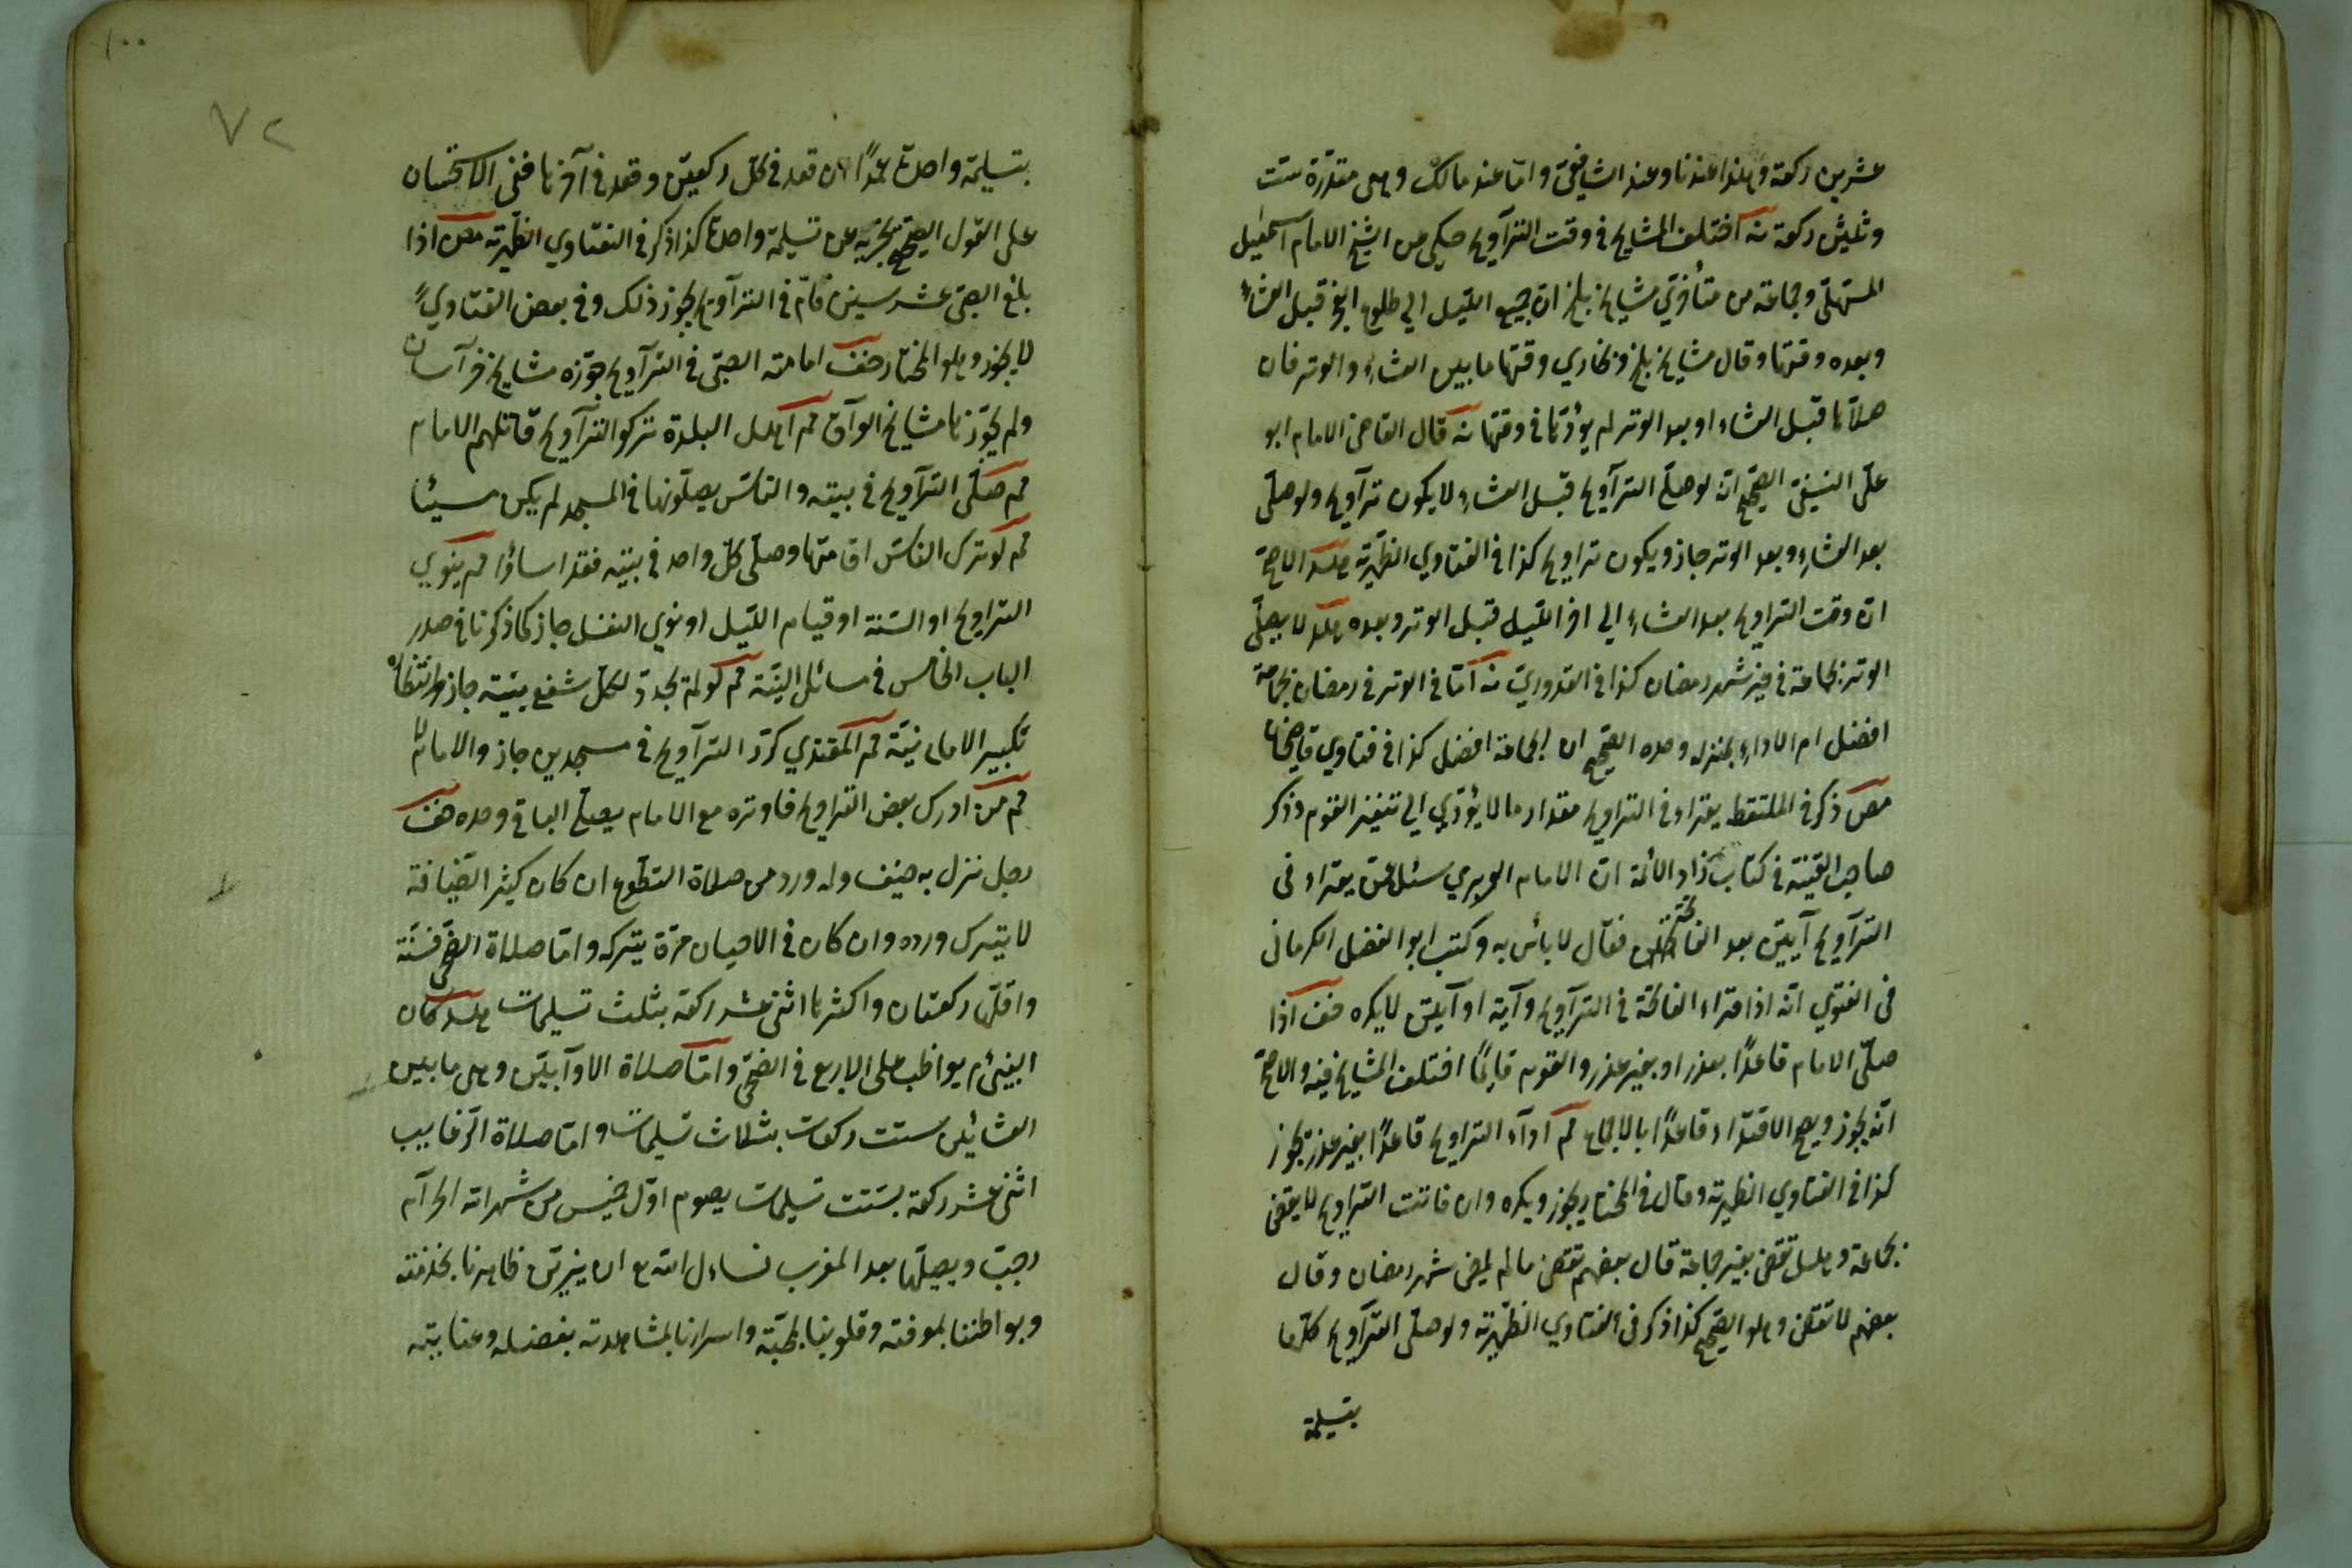 عشرين ركعة وهذا عندنا وعند الشافعيّ وامّا عند مالك وهى مقدّرة ستّ
وثلثين ركعة اختلف المشايخ في وقت التراويح حكي من الشيخ الامام اسمعيل
المستملّي وجماعة من متأخّري مشايخ بلخ انّ جميع الليل الي طلوع الفجر قبل العشاءِ
وبعده وقتها وقال مشايخ بلخ وبخاري وقتها ما بين العشاءِ والوتر فان
صلّاها قبل العشاء او بعد الوتر لم يؤدّها في وقتها قال القاضى الامام ابو
علىّ النسفىّ الصّحيح انّه لو صلّى التراويح قبل العشاءِ لا يكون تراويح ولو صلّى
بعد العشاءِ وبعد الوتر جاز ويكون تراويح كذا في الفتاوي الظهيرته الاصحّ
انّ وقت التراويح بعد العشاءِ الي اخر الليل قبل الوتر وبعده لا يصلّى
الوتر بجماعة في غير شهر رمضان كذا في القدوريّ امّا في الوتر في رمضان بجماعة
افضل ام الاداءِ بمنزله وحده الصّحيح ان الجماعة افضل كذا في فتاوي قاضيخان
ذكر في الملتقط يقراء في التراويح مقدار ما لا يؤدّي الي تنفير القوم وذكر
صاحب القنية في كتاب زاد الائمة انّ الامام الوبري سئل عمّن يقراء فى
التراويح آيتين بعد الفاتحة فقال لا بأس به وكتب ابو الفضل الكرمانى
فى الفتوي انّه اذا قراء الفاتحة في التراويح وآية او آيتين لا يكره اذا
صلّى الامام قاعدًا بعذر او بغير عذر والقوم قائمًا اختلف المشايخ فيه والاصحّ
انّه يجوز ويصحّ الاقتداء قاعدًا بالاجماع م اداء التراويح قاعدًا بغير عذر يجوز
كذا في الفتاوي الظهيرته وقال في المختار يجوز ويكره وان فاتت التراويح لا يقضى
بجماعة وهل تقضى بغير جماعة قال بعضهم تقضى ما لم يمضى شهر رمضان وقال
بعضهم لا تقضى وهو الصّحيح كذا ذكر في الفتاوي الظّهيرته ولو صلّى التراويح كلّها
بتسليمة
١٠٠
٧٢
بتسليمة واحدة عمدًا ان قعد في كلّ ركعتين وقعد في آخرها ففى الاستحسان
على القول الصّحيح يجزيه عن تسليمة واحدة كذا ذكر في الفتاوي الظّهيرته اذا
بلغ الصّبى عشر سنين فامّ في التراويح يجوز ذلك وفي بعض الفتاوي
لا يجوز وهو المختار امامة الصّبى في التراويح جوّزه مشايخ خراسان
ولم يجوّزها مشايخ العراق م اهل البلدة تركوا التراويح قاتلهم الامام
م صلّى التراويح في بيته والنّاس يصلّونها في المسجد لم يكن مسيئا
م لو ترك النّاس اقامتها وصلّى كلّ واحد في بيته فقد اساؤا م ينوي
التراويح او السّنة او قيام اللّيل او نوي النفل جاز كما ذكرنا في صدر
الباب الخامس في مسائل النيّة م لو لم يجدّد لكلّ شفع بنيّة جاز وانتظاره
تكبير الامام نيّة م المقتدي كرّر التراويح في مسجدين جاز والامام لا
م من ادرك بعض التراويح فاوتره مع الامام يصلّى الباقى وحده
رجل نزل به ضيف وله ورد من صلاة التطّوع ان كان كثير الضّيافة
لا يترك ورده وان كان في الاحيان مرّة يتركه وامّا صلاة الضّحى فسنّة
واقلّها ركعتان واكثرها اثنى عشر ركعة بثلث تسليمات كان
النبىّ م يواظب على الاربع في الضّحى وامّا صلاة الاوآبين وهى ما بين
العشائين ستّ ركعات بثلاث تسليمات وامّا صلاة الرّغايب
اثنى عشر ركعة بستّ تسليمات يصوم اوّل خميس من شهر الله الحرآم
رجب ويصلّيها بعد المغرب نسأل الله ان يزيّن ظاهرنا بخدمته
وبواطننا بمعرفته وقلوبنا بمحبّته واسرارنا بمشاهدته بفضله وعنايته